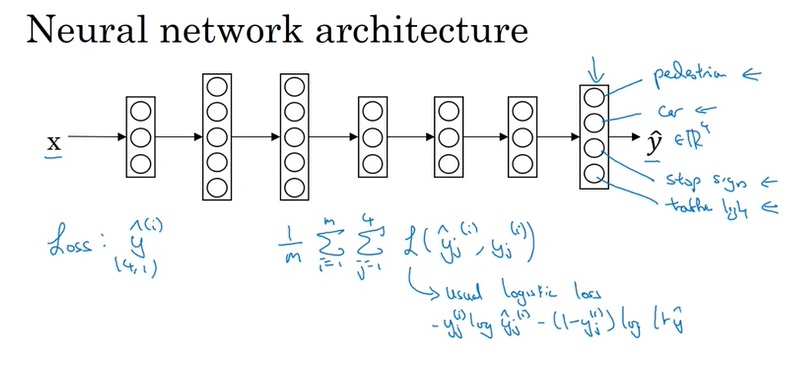 Neural network architecture
pedestrian ←
car ←
x
ŷ ∈ ℝ⁴
stop sign ←
Loss: ŷ⁽ⁱ⁾
(4,1)
1/m ∑ᵢ₌₁ᵐ ∑ⱼ₌₁⁴ ℒ(ŷⱼ⁽ⁱ⁾, yⱼ⁽ⁱ⁾)
usual logistic loss
- yⱼ⁽ⁱ⁾ log ŷⱼ⁽ⁱ⁾ - (1-yⱼ⁽ⁱ⁾) log (1+ŷ